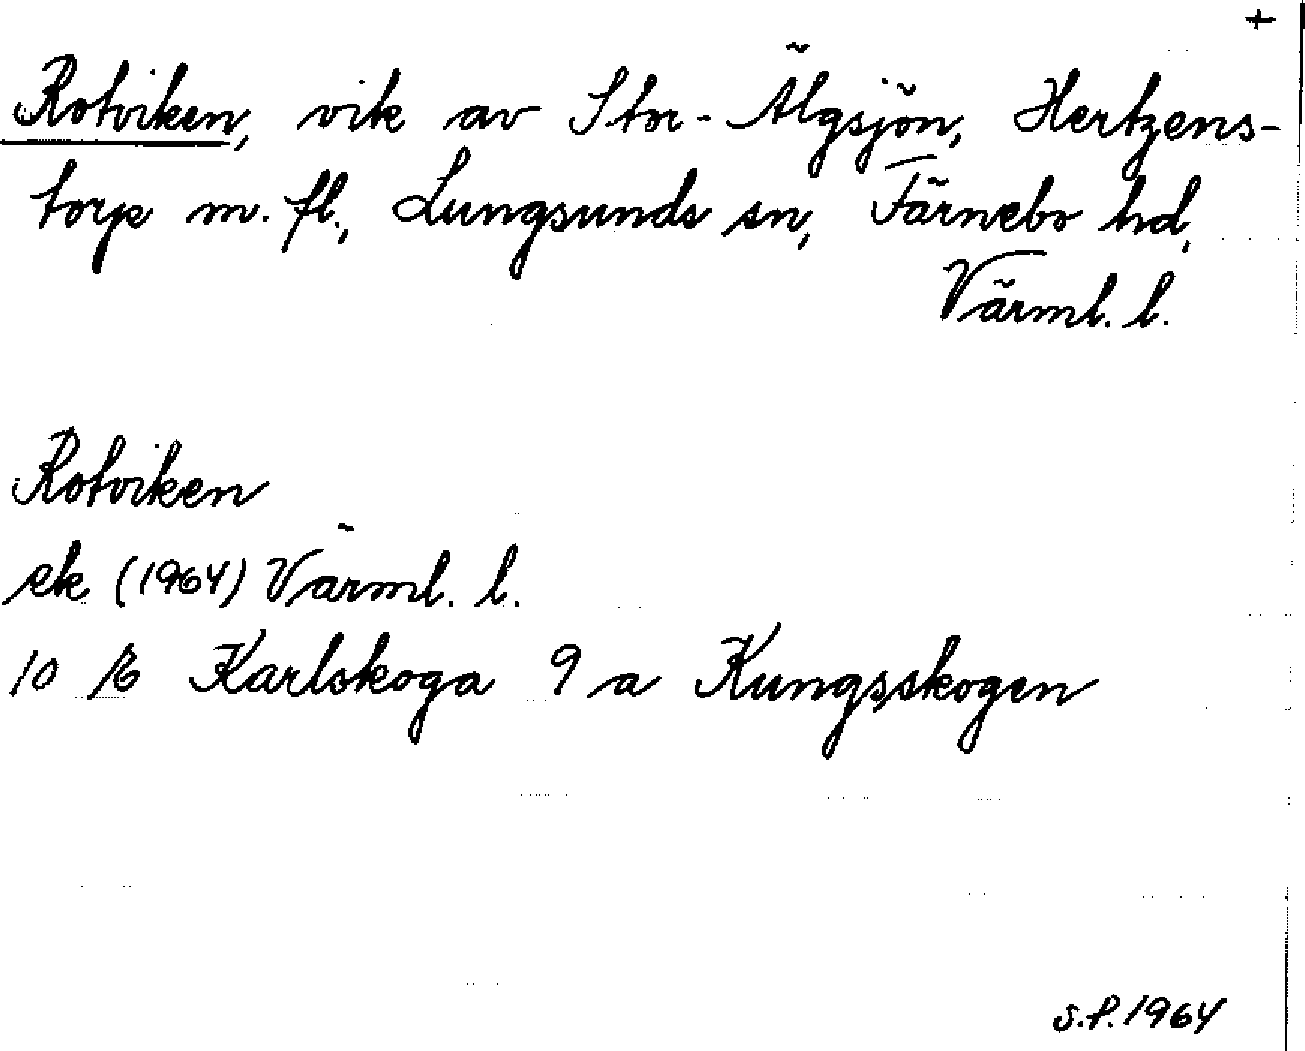 +
Rotviken, vik av Stor-Älgsjön, Hertzens-
torp m. fl., Lungsunds sn, Färnebo hd,
Värml. l.
Rotviken
ek (1964) Värml. l.
10 E Karlskoga 9 a Kungsskogen
S.P. 1964